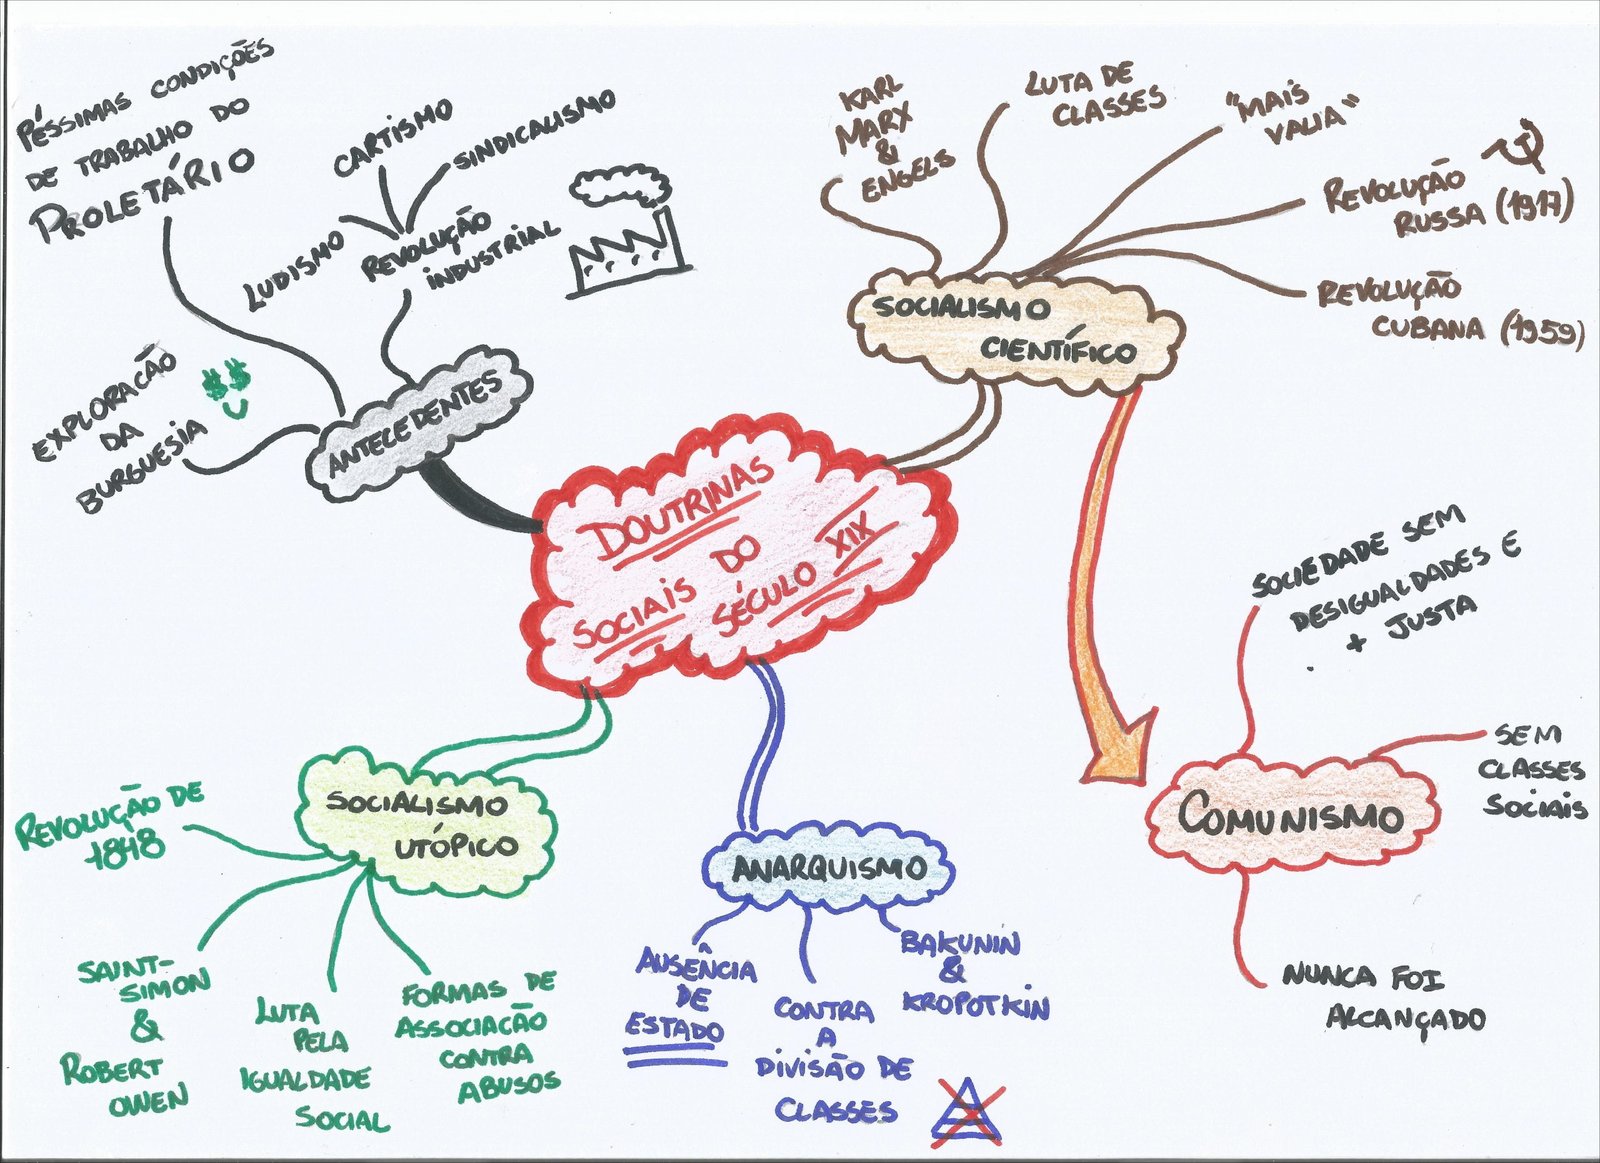 PÉSSIMAS CONDIÇÕES
DE TRABALHO DO
PROLETÁRIO
CARTISMO
SINDICALISMO
LUDISMO
REVOLUÇÃO
INDUSTRIAL
EXPLORAÇÃO
DA
BURGUESIA
$$
ANTECEDENTES
KARL
MARX
&
ENGELS
LUTA DE
CLASSES
"MAIS
VALIA"
REVOLUÇÃO
RUSSA (1917)
REVOLUÇÃO
CUBANA (1959)
SOCIALISMO
CIENTÍFICO
DOUTRINAS
SOCIAIS DO
SÉCULO XIX
SOCIEDADE SEM
DESIGUALDADES E
+ JUSTA
SEM
CLASSES
SOCIAIS
COMUNISMO
NUNCA FOI
ALCANÇADO
SOCIALISMO
UTÓPICO
REVOLUÇÃO DE
1848
SAINT-
SIMON
&
ROBERT
OWEN
LUTA
PELA
IGUALDADE
SOCIAL
FORMAS DE
ASSOCIAÇÃO
CONTRA
ABUSOS
ANARQUISMO
AUSÊNCIA
DE
ESTADO
CONTRA
A
DIVISÃO DE
CLASSES
BAKUNIN
&
KROPOTKIN